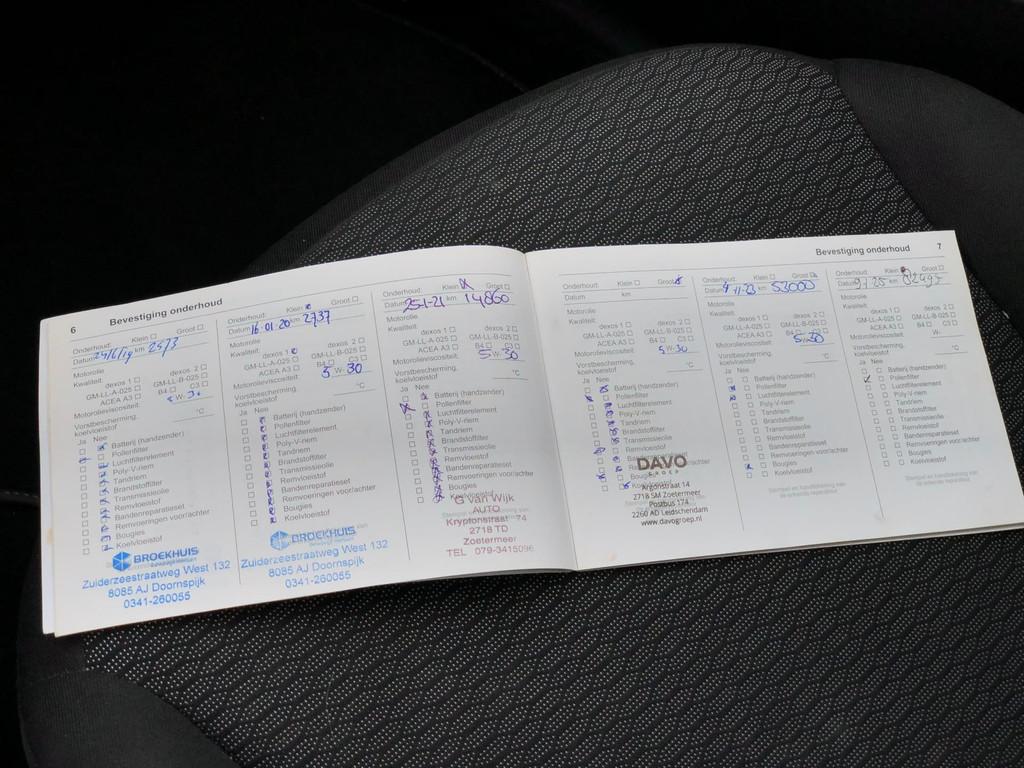 6 Bevestiging onderhoud
Onderhoud: Klein ☐ Groot ☐
Datum 24/6/19 km 2573
Motorolie
Kwaliteit: dexos 1 ☐ dexos 2 ☐
GM-LL-A-025 ☐ GM-LL-B-025 ☐
ACEA A3 ☐ B4 ☐ C3 ☐
Motorolieviscositeit: 5 W- 30
Vorstbescherming,
koelvloeistof °C
Ja Nee
Batterij (handzender)
Pollenfilter
Luchtfilterelement
Poly-V-riem
Tandriem
Brandstoffilter
Transmissieolie
Remvloeistof
Bandenreparatieset
Remvoeringen voor/achter
Bougies
Koelvloeistof
BROEKHUIS
Zuiderzeestraatweg West 132
8085 AJ Doornspijk
0341-260055
Onderhoud: Klein Groot ☐
Datum 16.01.20 km 2737
Motorolie
Kwaliteit: dexos 1 dexos 2 ☐
GM-LL-A-025 ☐ GM-LL-B-025 ☐
ACEA A3 ☐ B4 ☐ C3 ☐
Motorolieviscositeit: 5 W- 30
Vorstbescherming,
koelvloeistof °C
Ja Nee
Batterij (handzender)
Pollenfilter
Luchtfilterelement
Poly-V-riem
Tandriem
Brandstoffilter
Transmissieolie
Remvloeistof
Bandenreparatieset
Remvoeringen voor/achter
Bougies
Koelvloeistof
BROEKHUIS
Zuiderzeestraatweg West 132
8085 AJ Doornspijk
0341-260055
Onderhoud: Klein Groot ☐
Datum 25-1-21 km 14860
Motorolie
Kwaliteit: dexos 1 ☐ dexos 2 ☐
GM-LL-A-025 ☐ GM-LL-B-025 ☐
ACEA A3 ☐ B4 ☐ C3 ☐
Motorolieviscositeit: 5 W- 30
Vorstbescherming,
koelvloeistof °C
Ja Nee
Batterij (handzender)
Pollenfilter
Luchtfilterelement
Poly-V-riem
Tandriem
Brandstoffilter
Transmissieolie
Remvloeistof
Bandenreparatieset
Remvoeringen voor/achter
Bougies
Koelvloeistof
G van Wijk
AUTO
Kryptonstraat 74
2718 TD
Zoetermeer
TEL 079-3415096
Bevestiging onderhoud 7
Onderhoud: Klein ☐ Groot
Datum km
Motorolie
Kwaliteit: dexos 1 ☐ dexos 2 ☐
GM-LL-A-025 ☐ GM-LL-B-025 ☐
ACEA A3 ☐ B4 ☐ C3 ☐
Motorolieviscositeit: 5 W- 30
Vorstbescherming,
koelvloeistof °C
Ja Nee
Batterij (handzender)
Pollenfilter
Luchtfilterelement
Poly-V-riem
Tandriem
Brandstoffilter
Transmissieolie
Remvloeistof
DAVO
GROEP
Argonstraat 14
2718 SM Zoetermeer
Postbus 174
2260 AD Leidschendam
www.davogroep.nl
Onderhoud: Klein ☐ Groot
Datum 9-11-23 km 53000
Motorolie
Kwaliteit: dexos 1 ☐ dexos 2 ☐
GM-LL-A-025 ☐ GM-LL-B-025 ☐
ACEA A3 ☐ B4 ☐ C3 ☐
Motorolieviscositeit: 5 W- 30
Vorstbescherming,
koelvloeistof °C
Ja Nee
Batterij (handzender)
Pollenfilter
Luchtfilterelement
Poly-V-riem
Tandriem
Brandstoffilter
Transmissieolie
Remvloeistof
Bandenreparatieset
Remvoeringen voor/achter
Bougies
Koelvloeistof
Stempel en handtekening van
de erkende reparateur
Onderhoud: Klein Groot ☐
Datum km
Motorolie
Kwaliteit: dexos 1 ☐ dexos 2 ☐
GM-LL-A-025 ☐ GM-LL-B-025 ☐
ACEA A3 ☐ B4 ☐ C3 ☐
Motorolieviscositeit: W-
Vorstbescherming,
koelvloeistof °C
Ja Nee
Batterij (handzender)
Pollenfilter
Luchtfilterelement
Poly-V-riem
Tandriem
Brandstoffilter
Transmissieolie
Remvloeistof
Bandenreparatieset
Remvoeringen voor/achter
Bougies
Koelvloeistof
Stempel en handtekening van
de erkende reparateur